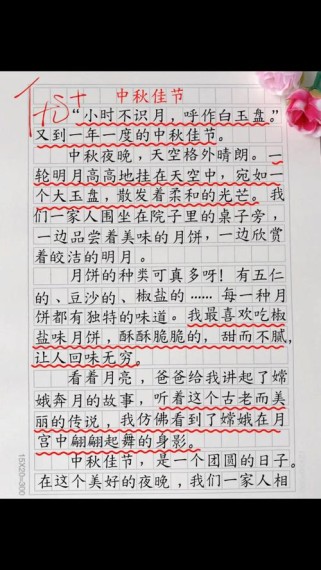 中秋佳节
“小时不识月，呼作白玉盘。”
又到一年一度的中秋佳节。
中秋夜晚，天空格外晴朗。一
轮明月高高地挂在天空中，宛如一
个大玉盘，散发着柔和的光芒。我
们一家人围坐在院子里的桌子旁，
一边品尝着美味的月饼，一边欣赏
着皎洁的明月。
月饼的种类可真多呀！有五仁
的、豆沙的、椒盐的……每一种月
饼都有独特的味道。我最喜欢吃椒
盐味月饼，酥酥脆脆的，甜而不腻，
让人回味无穷。
看着月亮，爸爸给我讲起了嫦
娥奔月的故事，听着这个古老而美
丽的传说，我仿佛看到了嫦娥在月
宫中翩翩起舞的身影。
中秋佳节，是一个团圆的日子。
在这个美好的夜晚，我们一家人相
15X20=300